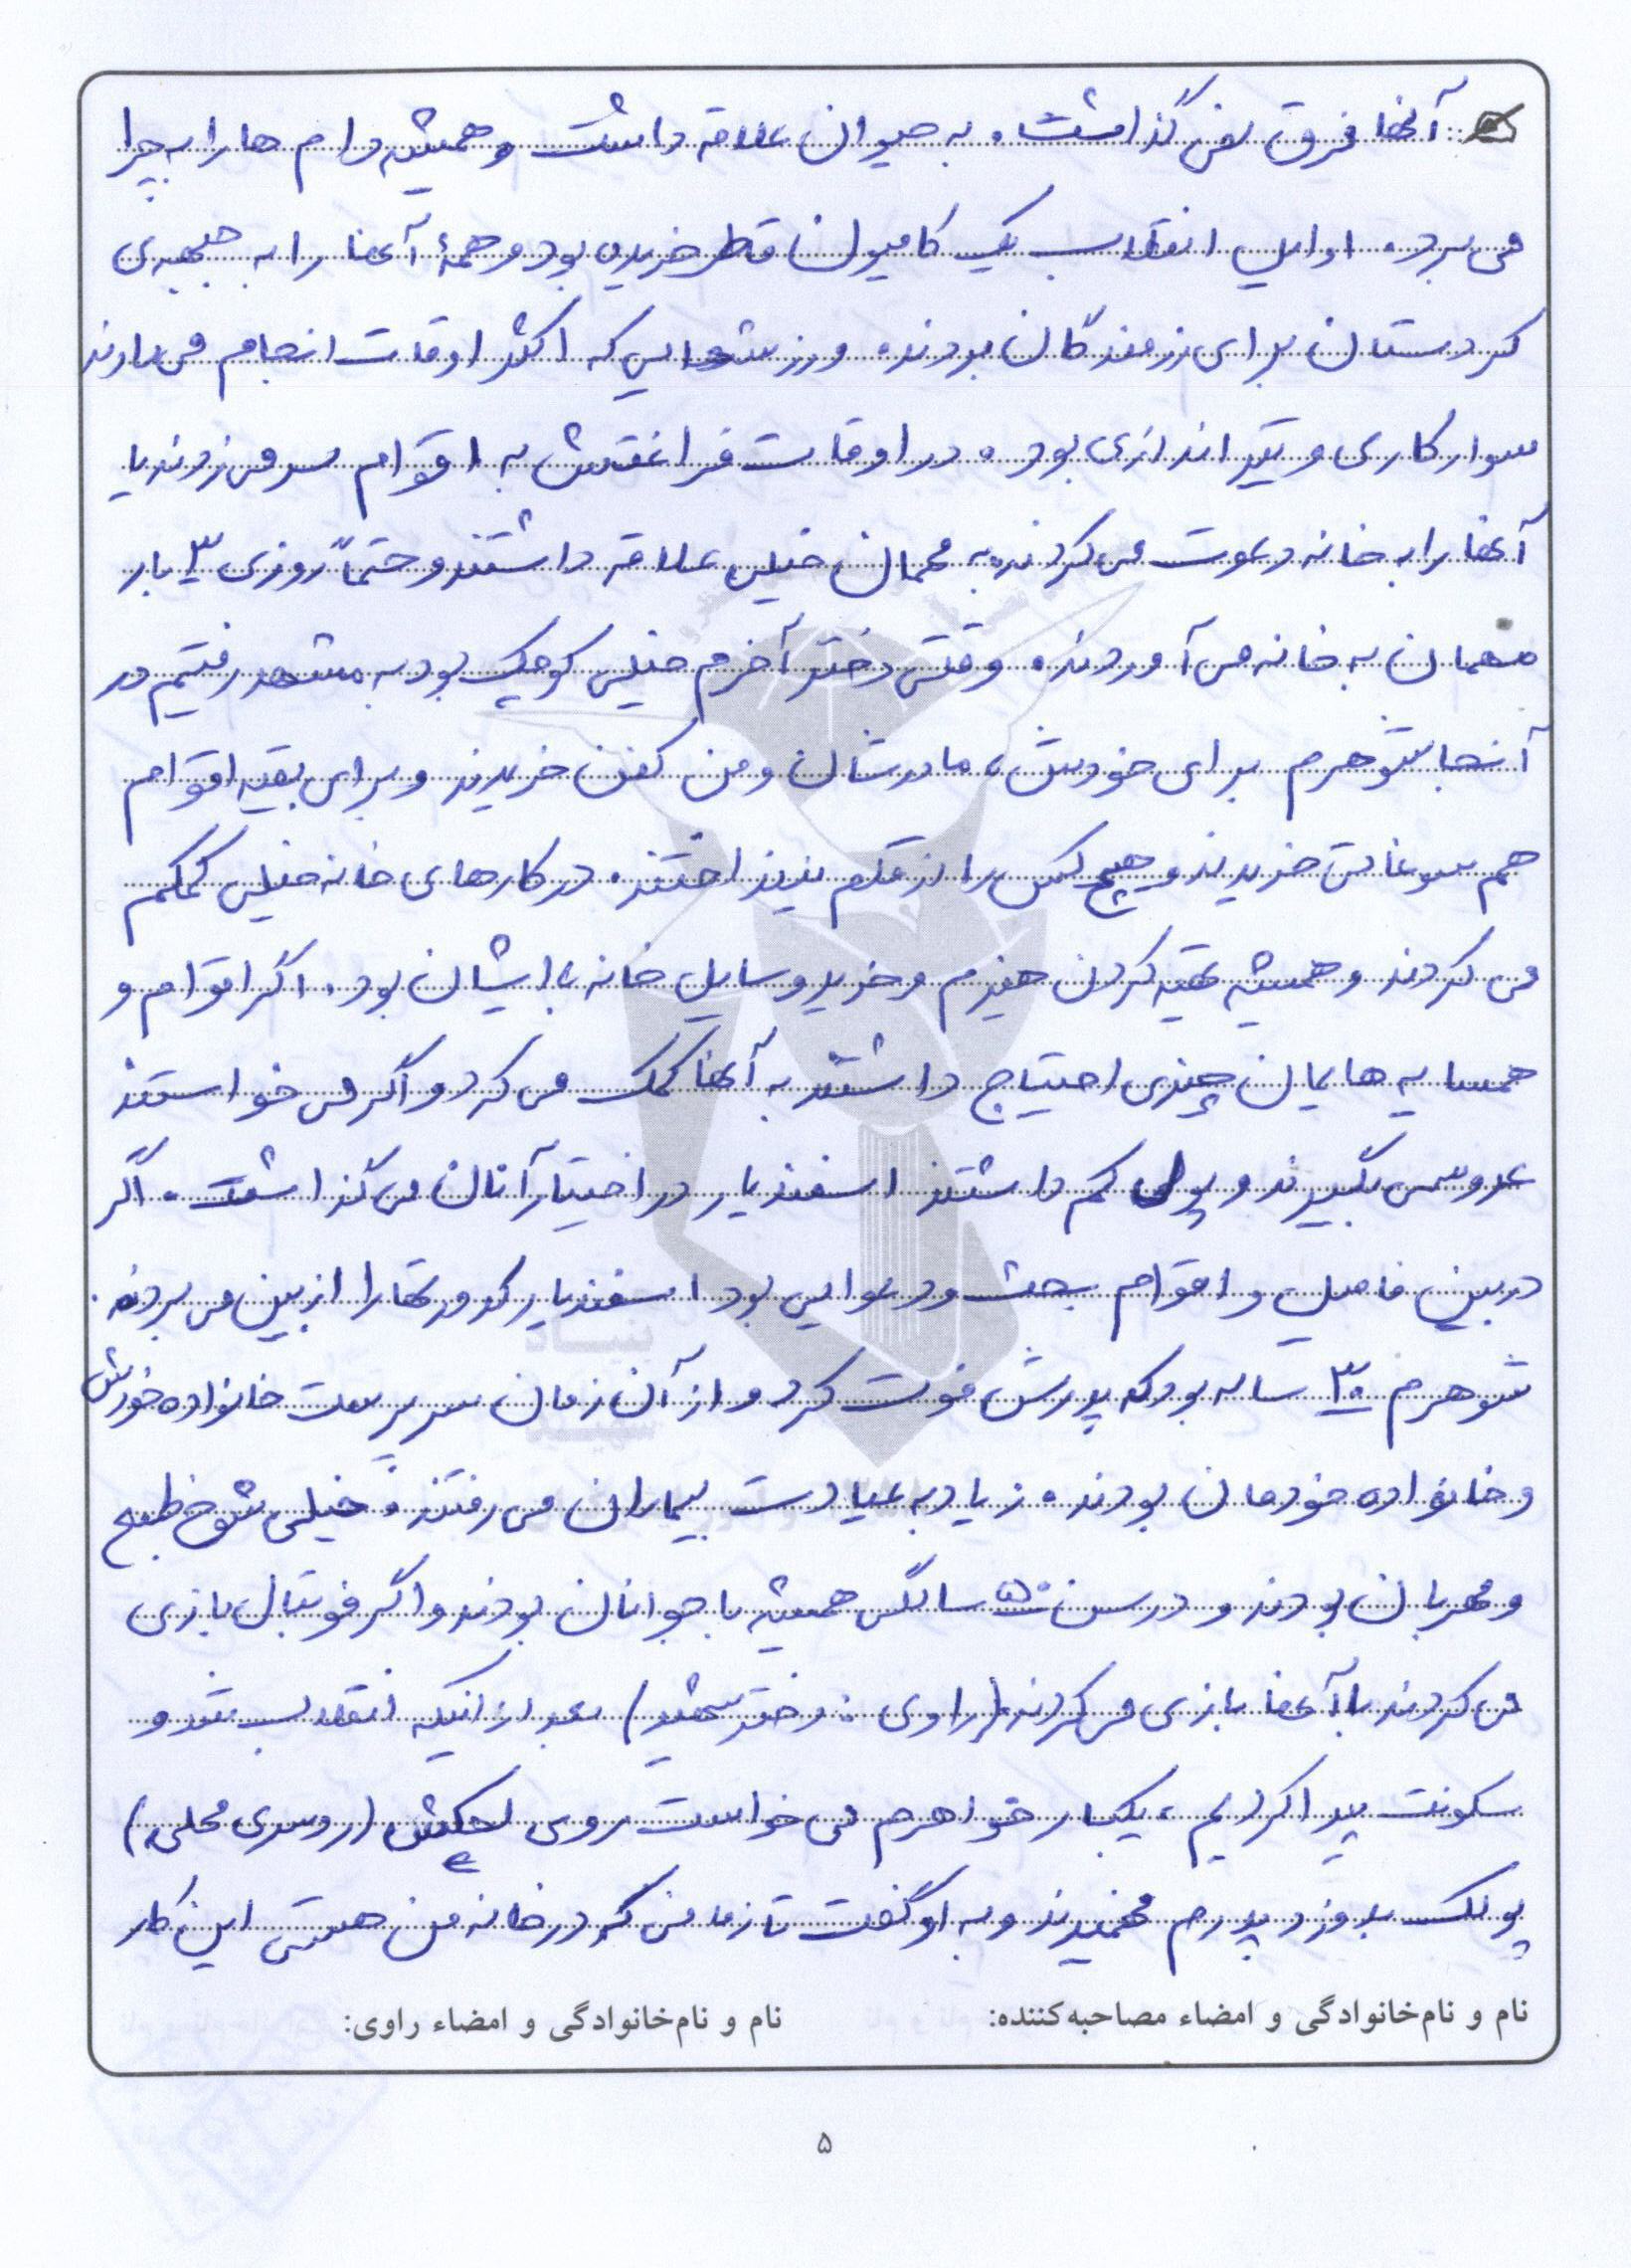 آنها فرق نمی گذاشت. به حیوان علاقه داشت و همیشه دام ها را به چرا
می برد. اوایل انقلاب یک کامیون قاطر خریده بود و همهٔ آنها را به جبهه ی
کردستان برای رزمندگان بودند. ورزشهایی که اکثر اوقات انجام می دادند
سوارکاری و تیراندازی بود. در اوقات فراغتش به اقوام سر می زدند یا
آنها را به خانه دعوت می کردند. به مهمان خیلی علاقه داشتند و حتماً روزی ۳ بار
مهمان به خانه می آوردند. وقتی دختر آخرم خیلی کوچک بود به مشهد رفتیم در
آنجا شوهرم برای خودش، مادرشان و من کفن خریدند و برای بقیه اقوام
هم سوغاتی خریدند و هیچ کس را از قلم نینداختند. در کارهای خانه خیلی کمکم
می کردند و همیشه تهیّه کردن هیزم و خرید وسایل خانه با ایشان بود. اگر اقوام و
همسایه هایمان چیزی احتیاج داشتند به آنها کمک می کرد و اگر می خواستند
عروسی بگیرند و پول کم داشتند اسفندیار در اختیار آنان می گذاشت. اگر
در بین فامیل و اقوام بحث و دعوایی بود اسفندیار کدورتها را از بین می بردند.
شوهرم ۳۰ ساله بود که پدرش فوت کرد و از آن زمان سرپرست خانواده خودش
و خانواده خودمان بودند. زیاد به عیادت بیماران می رفتند. خیلی شوخ طبع
و مهربان بودند و در سن ۵۰ سالگی همیشه با جوانان بودند و اگر فوتبال بازی
می کردند با آنها بازی می کردند. (راوی: دختر شهید) بعد از اینکه انقلاب شد و
سکونت پیدا کردیم، یکبار خواهرم می خواست روی لچکش (روسری محلی)
پولک بدوزد پدرم فهمیدند و به او گفت تا زمانی که در خانه من هستی این کار
نام و نام‌خانوادگی و امضاء مصاحبه‌کننده: نام و نام‌خانوادگی و امضاء راوی:
۵